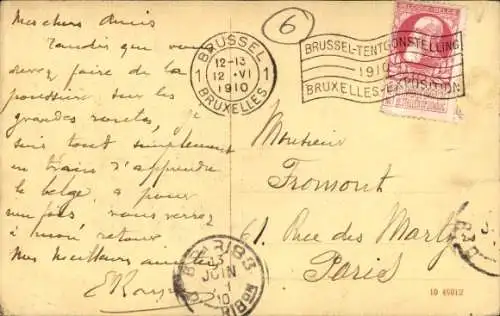 Mes chers Amis
Tandis que vous
devez faire de la
poussière sur les
grandes routes, je
suis tout simplement
en train d'apprendre
le belge, a pour
une fois vous verrez
à mon retour
Mes meilleures amitiés
6
BRUSSEL
1 12-13 1
12 · VI
1910
BRUXELLES
BRUSSEL-TENTOONSTELLING
1910
BRUXELLES-EXPOSITION
Monsieur
Fromont
61, Rue des Martyrs
Paris
13
JUIN
10